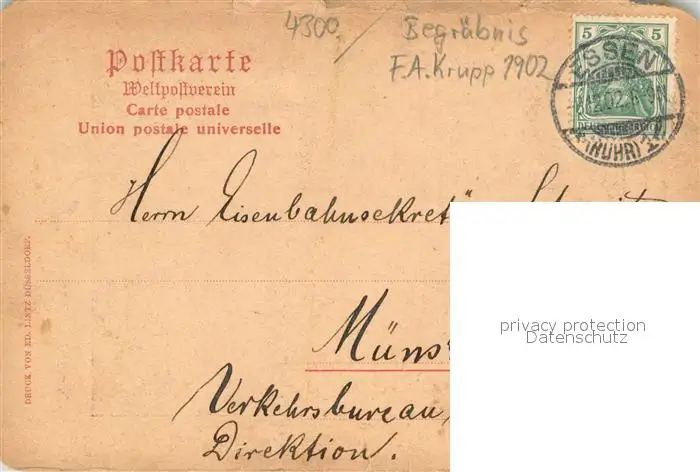 4300.
Begräbnis
F.A. Krupp 1902
Postkarte
Weltpostverein
Carte postale
Union postale universelle
5 5
ESSEN
(RUHR)
Herrn Eisenbahnsekret
Müns
Verkehrsbureau,
Direktion.
DRUCK VON ED. LINTZ DÜSSELDORF.
privacy protection
Datenschutz